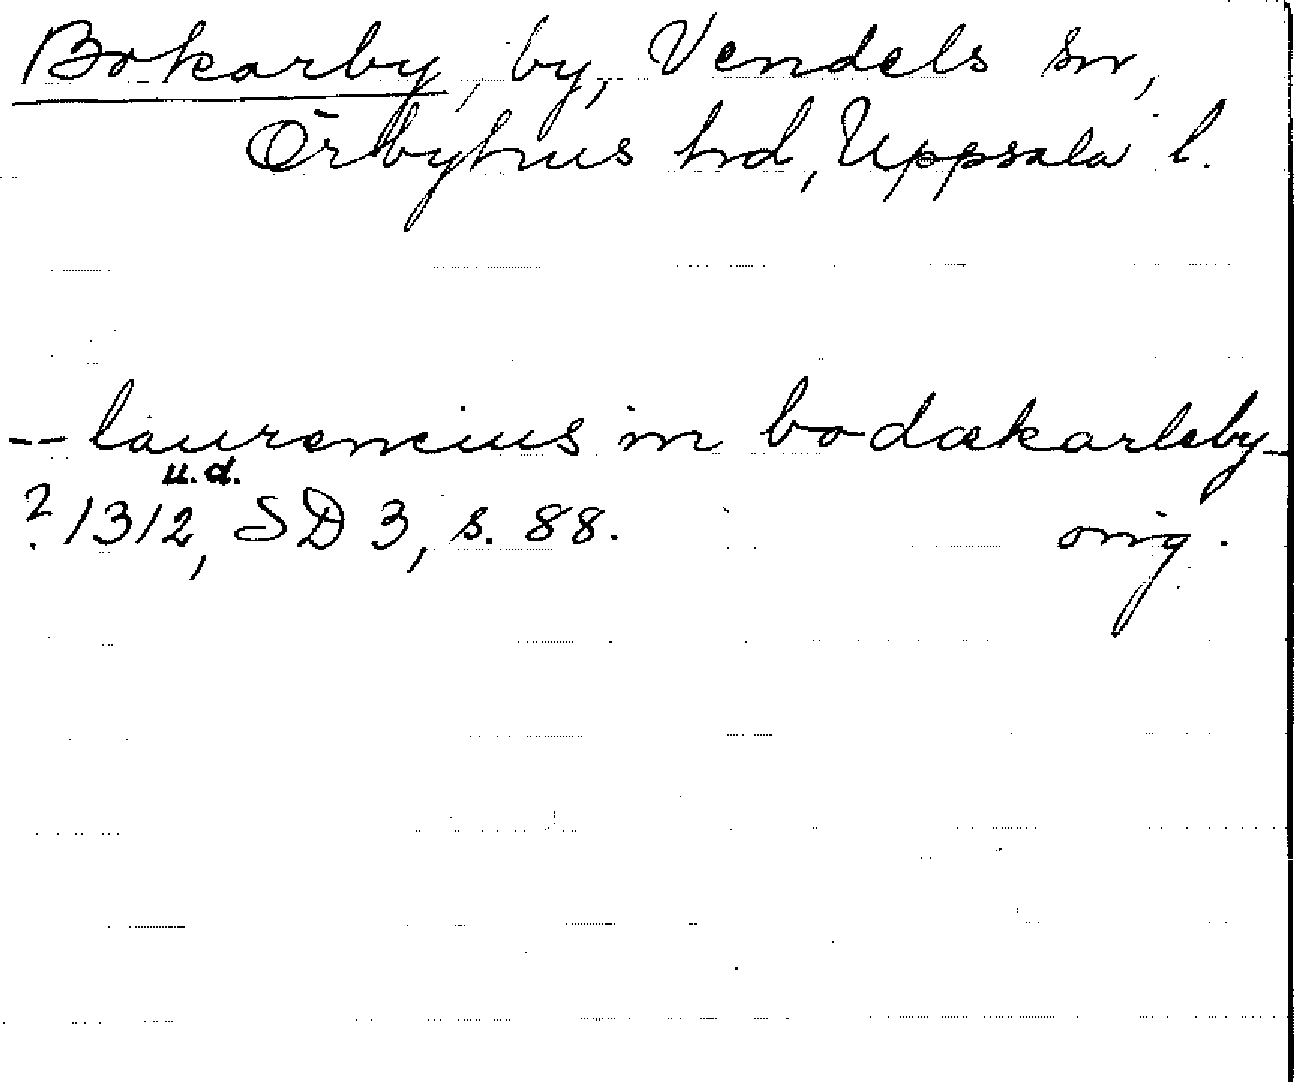 Bokarby, by, Vendels sn,
Örbyhus hd, Uppsala l.
-- laurencius in bodækarleby -
u.d.
? 1312, SD 3, s. 88. orig.